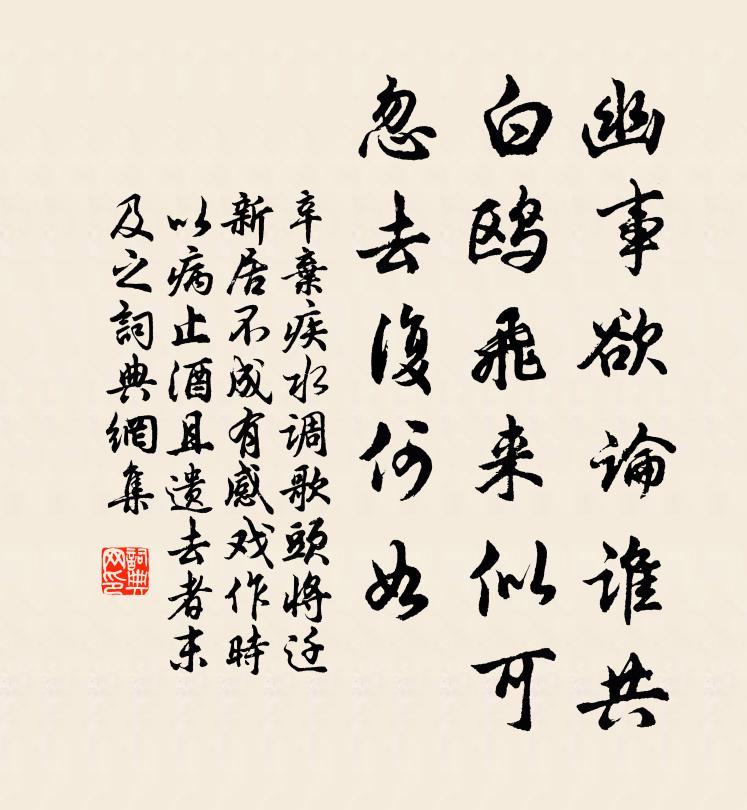 幽事欲論誰共
白鸥飛来似可
忽去復何如
辛棄疾水调歌頭將迁
新居不成有感戏作時
以病止酒且遣去者末
及之詞典網集
詞典
网印